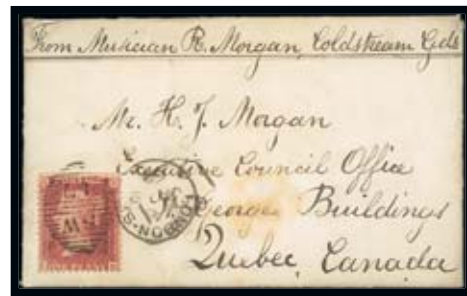 From Musician R. Morgan, Coldstream Gds
Mr. H. J. Morgan
Executive Council Office
George Buildings
Quebec, Canada
LONDON-S
SW
ONE PENNY